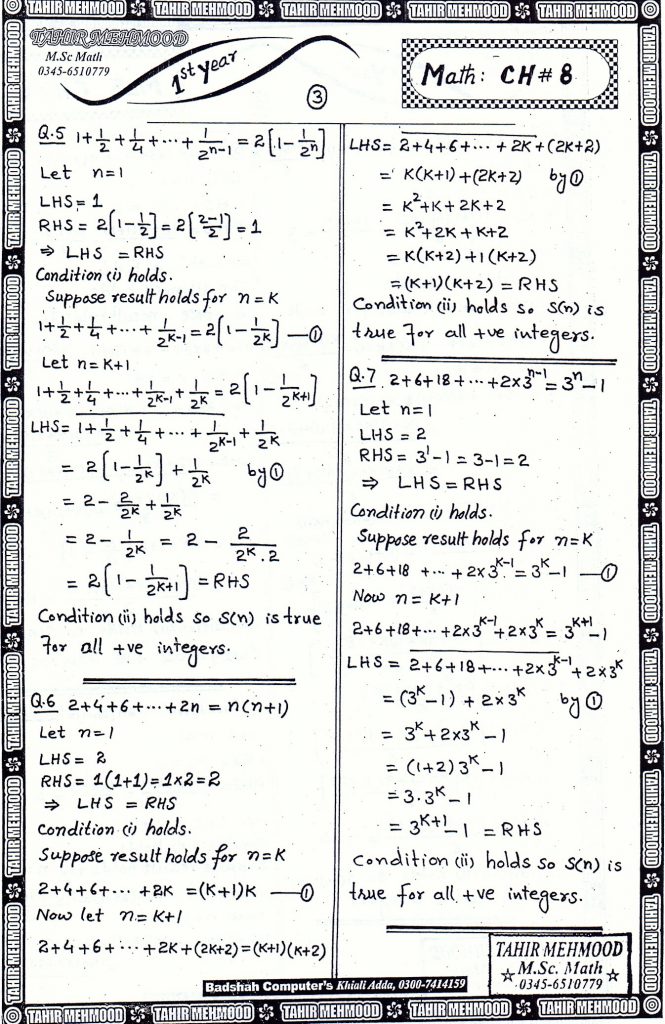 TAHIR MEHMOOD TAHIR MEHMOOD TAHIR MEHMOOD TAHIR MEHMOOD TAHIR MEHMOOD
TAHIR MEHMOOD
M.Sc Math
0345-6510779
1st year
3
Math: CH # 8
Q.5 1+1/2+1/4+...+1/2^(n-1) = 2[1-1/2^n]
Let n=1
LHS=1
RHS = 2[1-1/2] = 2[(2-1)/2] = 1
⇒ LHS = RHS
Condition (i) holds.
Suppose result holds for n=K
1+1/2+1/4+...+1/2^(K-1) = 2[1-1/2^K] —①
Let n=K+1
1+1/2+1/4+...+1/2^(K-1)+1/2^K = 2[1-1/2^(K+1)]
LHS= 1+1/2+1/4+...+1/2^(K-1)+1/2^K
= 2[1-1/2^K]+1/2^K by ①
= 2-2/2^K+1/2^K
= 2-1/2^K = 2-2/(2^K.2)
= 2[1-1/2^(K+1)] = RHS
Condition (ii) holds so S(n) is true
For all +ve integers.
Q.6 2+4+6+...+2n = n(n+1)
Let n=1
LHS= 2
RHS= 1(1+1)=1×2=2
⇒ LHS = RHS
Condition (i) holds.
Suppose result holds for n=K
2+4+6+... +2K =(K+1)K —①
Now let n=K+1
2+4+6+...+2K+(2K+2)=(K+1)(K+2)
LHS= 2+4+6+...+2K+(2K+2)
= K(K+1)+(2K+2) by ①
= K²+K+2K+2
= K²+2K+K+2
= K(K+2)+1(K+2)
=(K+1)(K+2) = RHS
Condition (ii) holds so S(n) is
true For all +ve integers.
Q.7 2+6+18+...+2×3^(n-1)=3^n-1
Let n=1
LHS = 2
RHS = 3^1-1=3-1=2
⇒ LHS=RHS
Condition (i) holds.
Suppose result holds for n=K
2+6+18 +...+2×3^(K-1)=3^K-1 —①
Now n=K+1
2+6+18+...+2×3^(K-1)+2×3^K=3^(K+1)-1
LHS = 2+6+18+...+2×3^(K-1)+2×3^K
=(3^K-1)+2×3^K by ①
= 3^K+2×3^K-1
= (1+2)3^K-1
=3.3^K-1
=3^(K+1)-1 =RHS
Condition (ii) holds so S(n) is
true for all +ve integers.
TAHIR MEHMOOD
M.Sc. Math
0345-6510779
Badshah Computer's Khiali Adda, 0300-7414159
TAHIR MEHMOOD TAHIR MEHMOOD TAHIR MEHMOOD TAHIR MEHMOOD TAHIR MEHMOOD